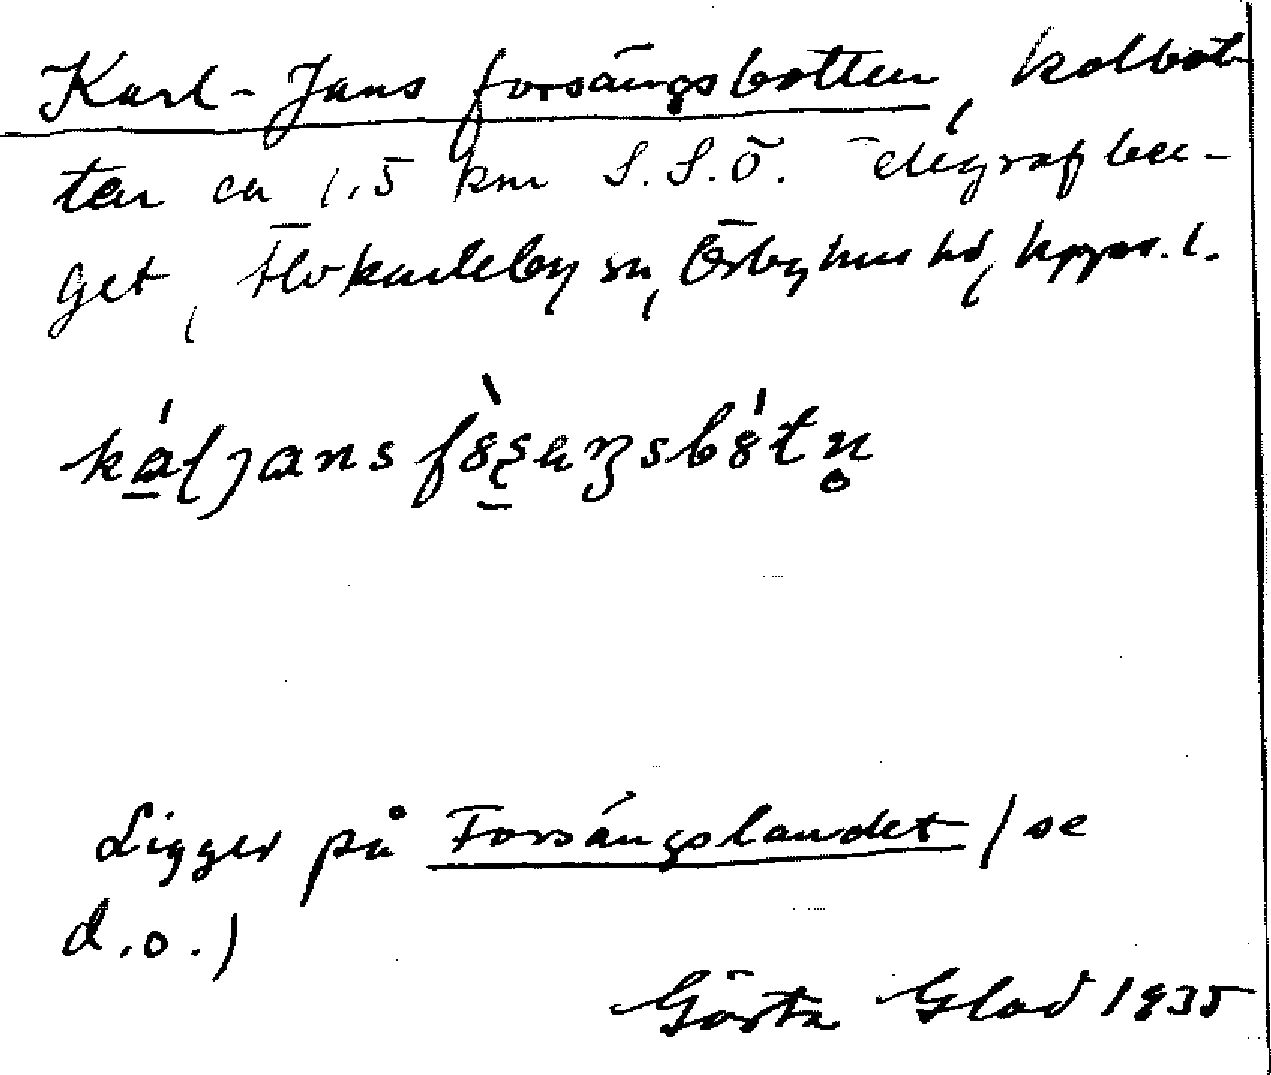 Karl-Jans forsängsbotten, kolbot-
ten ca 1.5 km S.S.Ö. Telegrafber-
get, Älvkarleby sn, Örbyhus hd, Upps. l.
Ligger på Forsängslandet (se
d.o.)
Gösta Glad 1935